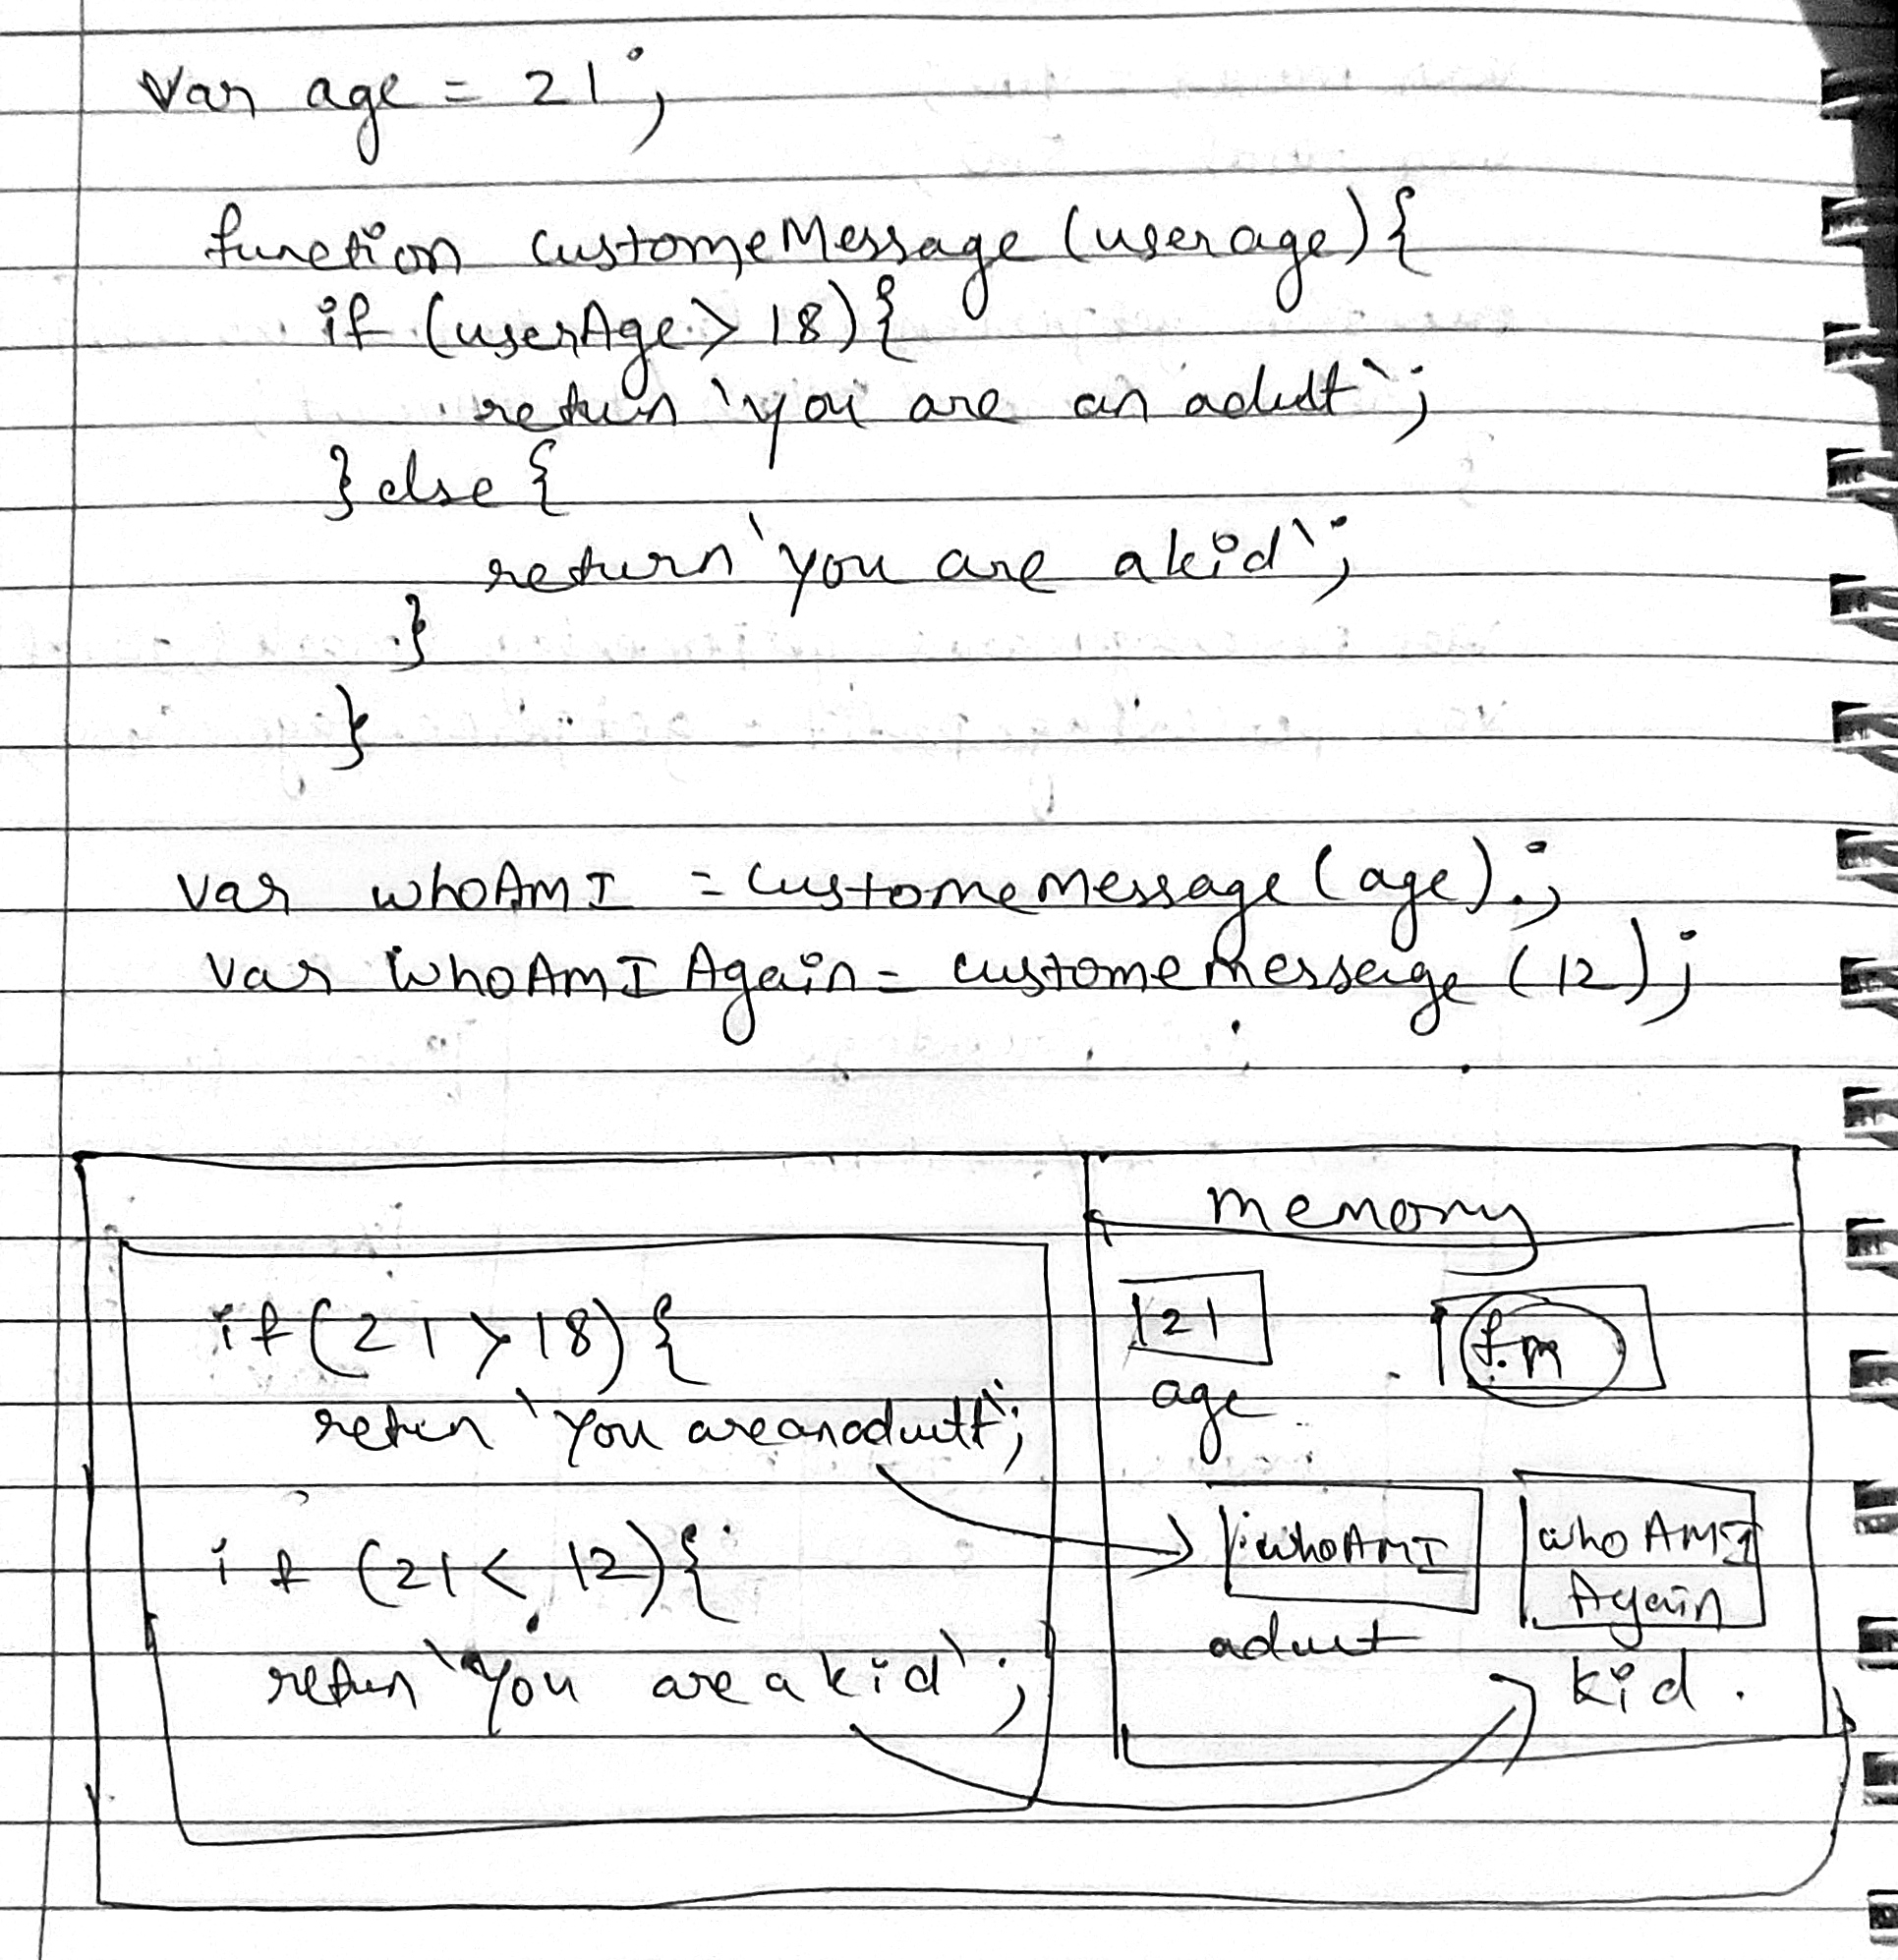 Var age = 21;
function customeMessage (userage) {
if (userAge > 18) {
return `you are an adult`;
} else {
return `you are a kid`;
}
}
var whoAmI = CustomeMessage (age);
var whoAmI Again = custome Message (12);
memory
if (21 > 18) {
return `You are an adult`;
21
f.m
age
if (21 < 12) {
return `You are a kid`;
whoAmI
who AMI
Again
adult
kid.